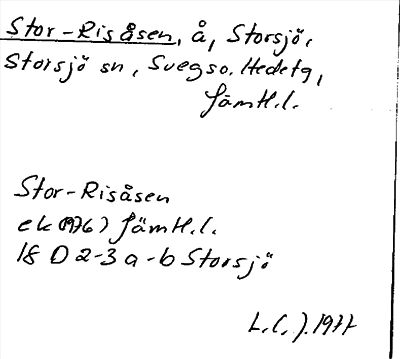 Stor-Risåsen, å, Storsjö,
Storsjö sn, Svegs o. Hedetg,
Jämtl.l.
Stor-Risåsen
ek (1976) Jämtl.l.
18 D 2-3 a-b Storsjö
L.C.J. 1977